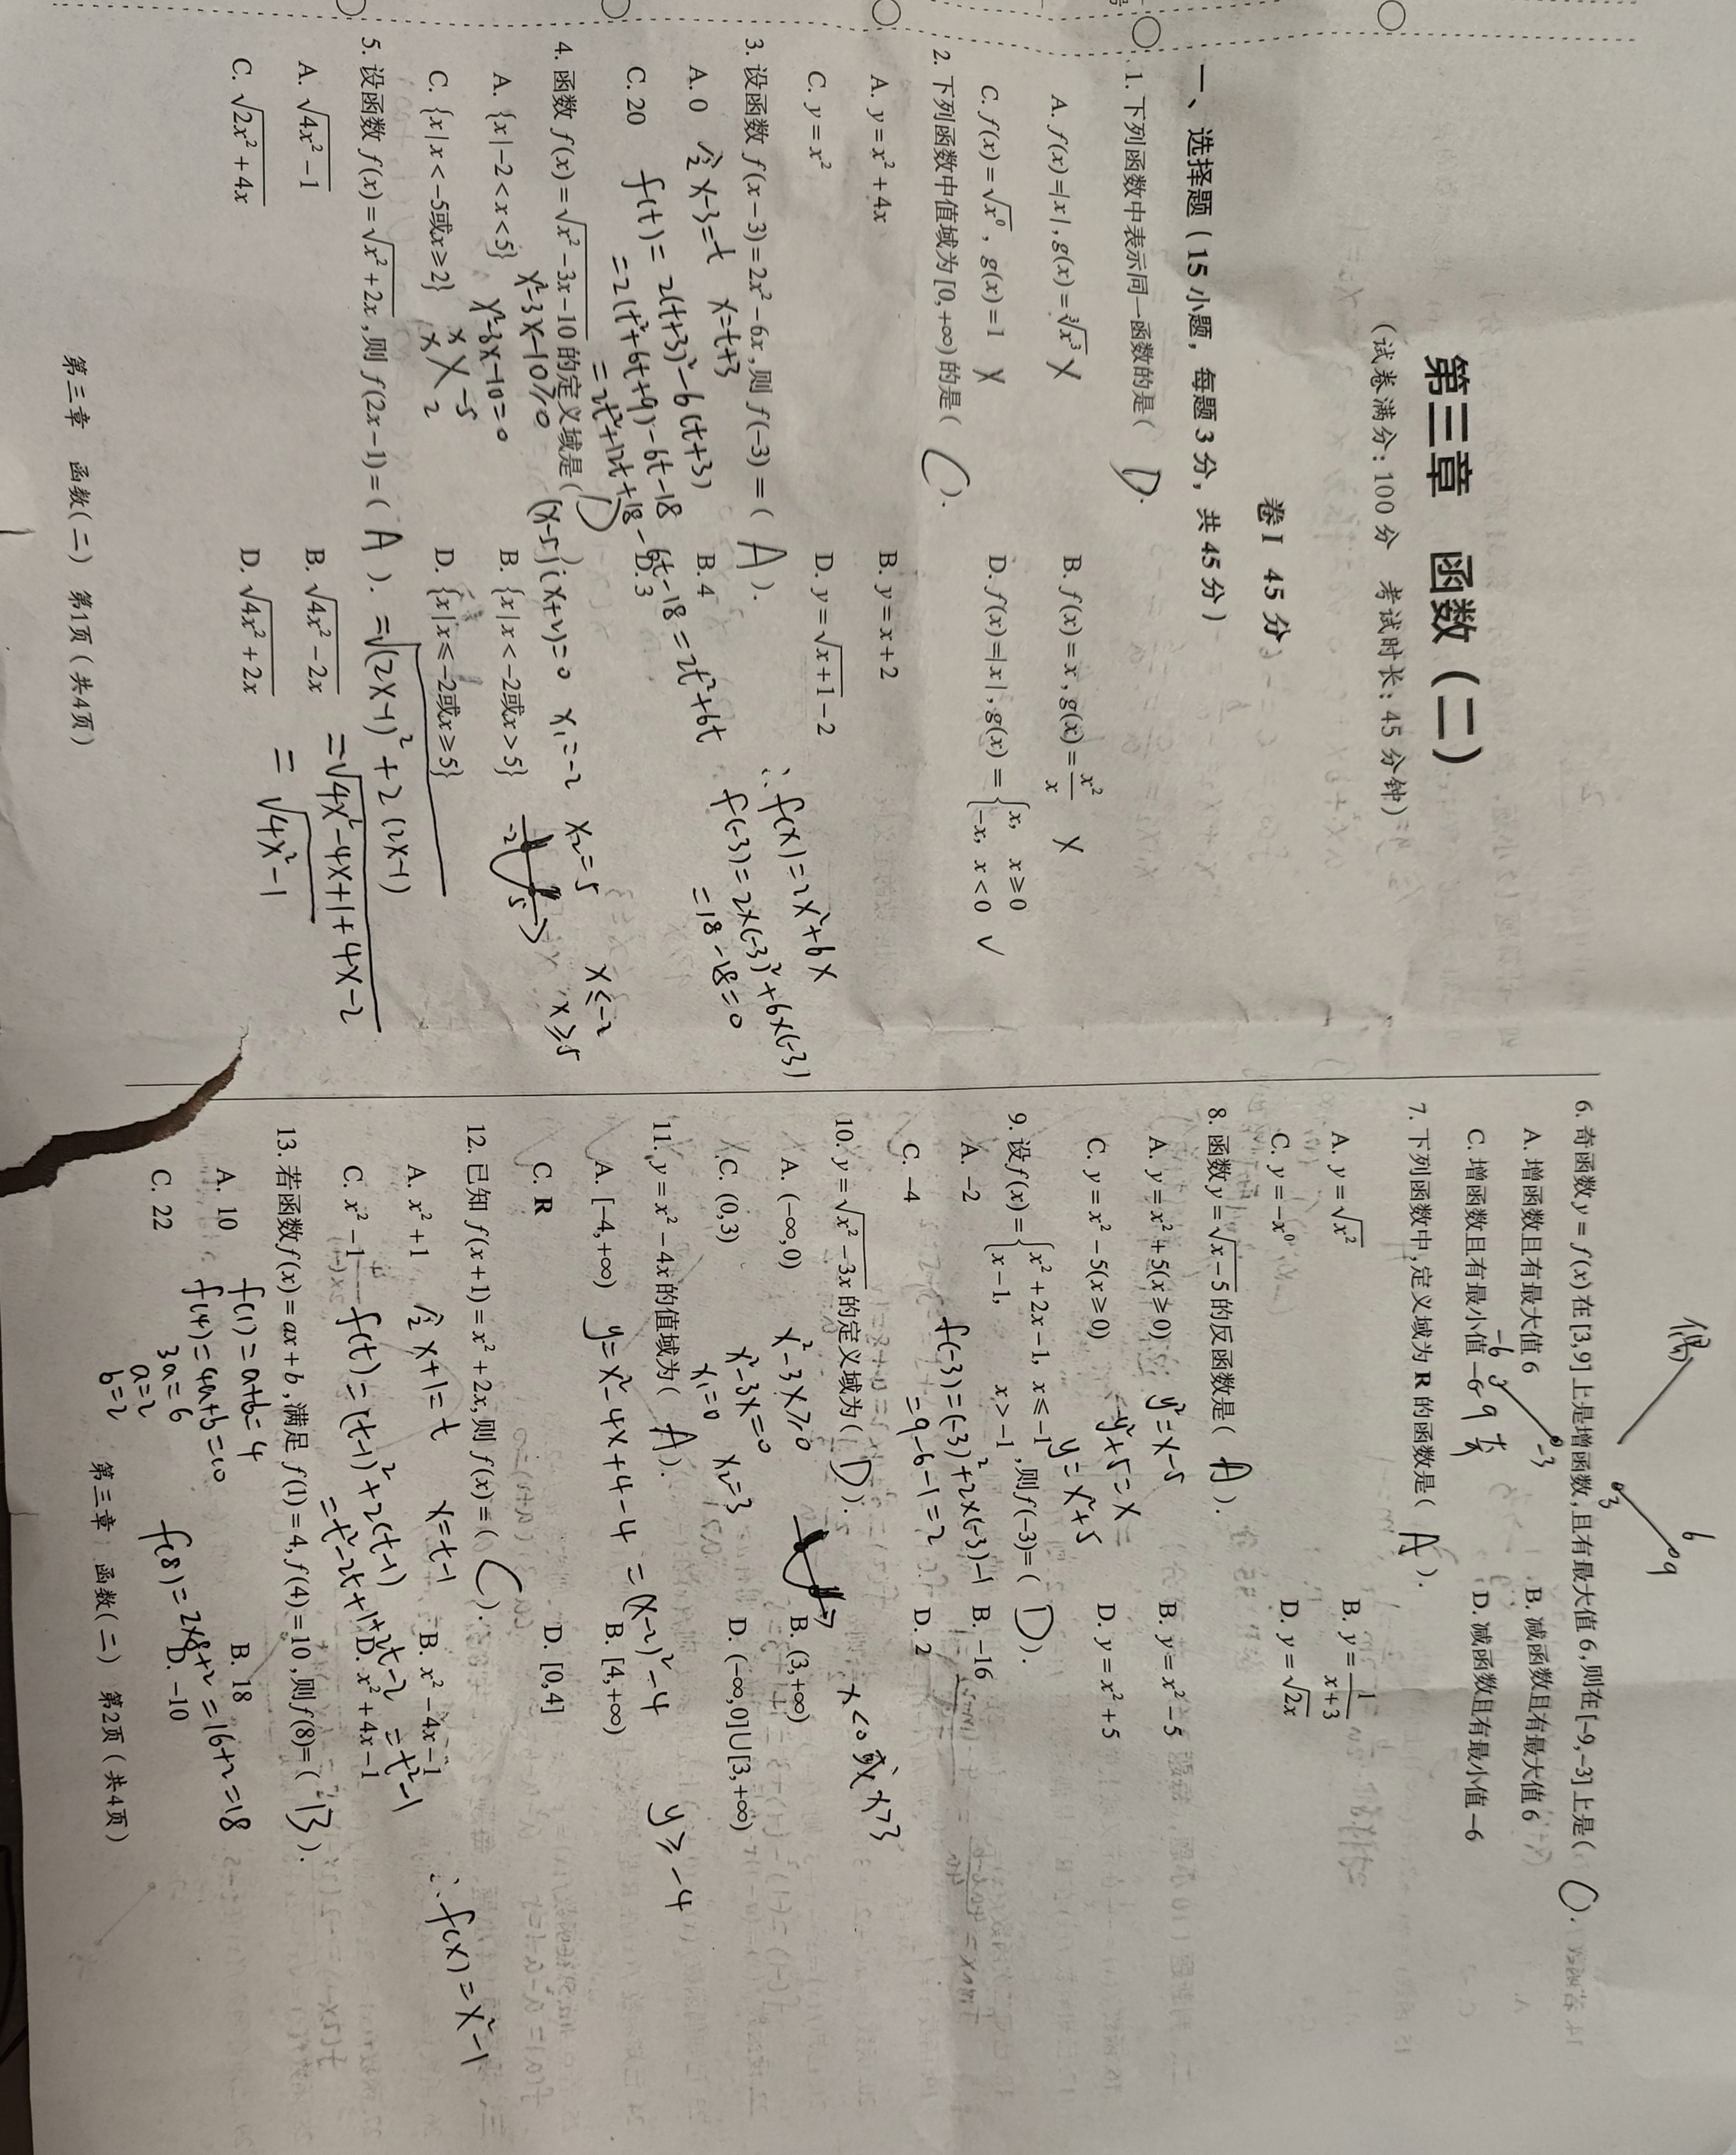 第三章 函数（二）
（试卷满分：100 分 考试时长：45 分钟）
卷 I 45 分
一、选择题（15 小题，每题 3 分，共 45 分）
1. 下列函数中表示同一函数的是（ D ）.
A. f(x)=|x|, g(x)=∛x³ ×
B. f(x)=x, g(x)=x²/x ×
C. f(x)=√x⁰, g(x)=1 ×
D. f(x)=|x|, g(x)={x, x≥0 -x, x<0 √
2. 下列函数中值域为 [0,+∞) 的是（ C ）.
A. y=x²+4x
B. y=x+2
C. y=x²
D. y=√(x+1)-2
3. 设函数 f(x-3)=2x²-6x,则 f(-3)=（ A ）.
A. 0
B. 4
C. 20
D. 3
令 x-3=t x=t+3
f(t)=2(t+3)²-6(t+3)
=2(t²+6t+9)-6t-18
=2t²+12t+18-6t-18=2t²+6t
∴f(x)=2x²+6x
f(-3)=2×(-3)²+6×(-3)
=18-18=0
4. 函数 f(x)=√(x²-3x-10) 的定义域是（ D ）.
A. {x|-2<x<5}
B. {x|x<-2或x>5}
C. {x|x<-5或x≥2}
D. {x|x≤-2或x≥5}
x²-3x-10≥0
x²-3x-10=0
x -5
x 2
(x-5)(x+2)=0 x₁=-2 x₂=5
-2 5
x≤-2
x≥5
5. 设函数 f(x)=√(x²+2x),则 f(2x-1)=（ A ）.
A. √(4x²-1)
B. √(4x²-2x)
C. √(2x²+4x)
D. √(4x²+2x)
=√((2x-1)²+2(2x-1))
=√(4x²-4x+1+4x-2)
=√(4x²-1)
第三章 函数(二) 第1页（共4页）
偶
3 6 9
6. 奇函数 y=f(x) 在 [3,9] 上是增函数,且有最大值 6,则在 [-9,-3] 上是（ C ）.
A. 增函数且有最大值 6
B. 减函数且有最大值 6
C. 增函数且有最小值 -6
D. 减函数且有最小值 -6
-6 -9 奇 -3
7. 下列函数中,定义域为 R 的函数是（ A ）.
A. y=√x²
B. y=1/(x+3)
C. y=-x⁰
D. y=√2x
8. 函数 y=√(x-5) 的反函数是（ A ）.
A. y=x²+5(x≥0)
B. y=x²-5
C. y=x²-5(x≥0)
D. y=x²+5
y²=x-5
y²+5=x
y=x²+5
9. 设 f(x)={x²+2x-1, x≤-1 x-1, x>-1 ,则 f(-3)=（ D ）.
A. -2
B. -16
C. -4
D. 2
f(-3)=(-3)²+2×(-3)-1
=9-6-1=2
10. y=√(x²-3x) 的定义域为（ D ）.
A. (-∞,0)
B. (3,+∞)
C. (0,3)
D. (-∞,0]∪[3,+∞)
x²-3x≥0
x²-3x=0
x₁=0 x₂=3
x<0或x>3
11. y=x²-4x 的值域为（ A ）.
A. [-4,+∞)
B. [4,+∞)
C. R
D. [0,4]
y=x²-4x+4-4=(x-2)²-4
y≥-4
12. 已知 f(x+1)=x²+2x,则 f(x)=（ C ）.
A. x²+1
B. x²-4x-1
C. x²-1
D. x²+4x-1
令 x+1=t x=t-1
f(t)=(t-1)²+2(t-1)
=t²-2t+1+2t-2=t²-1
∴f(x)=x²-1
13. 若函数 f(x)=ax+b,满足 f(1)=4,f(4)=10,则 f(8)=（ B ）.
A. 10
B. 18
C. 22
D. -10
f(1)=a+b=4
f(4)=4a+b=10
3a=6
a=2
b=2
f(8)=2×8+2=16+2=18
第三章 函数(二) 第2页（共4页）